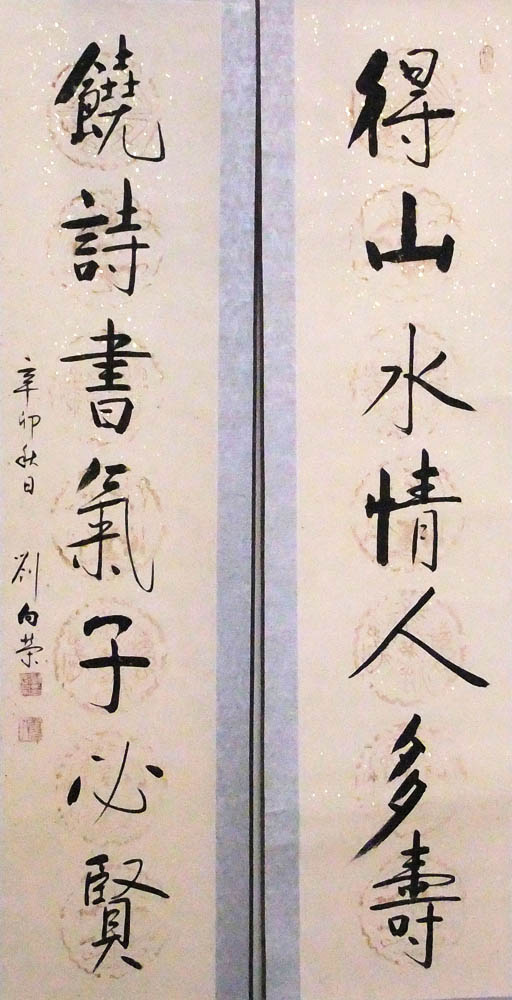 得山水情人多壽
饒詩書氣子必賢
辛卯秋日 劉向榮